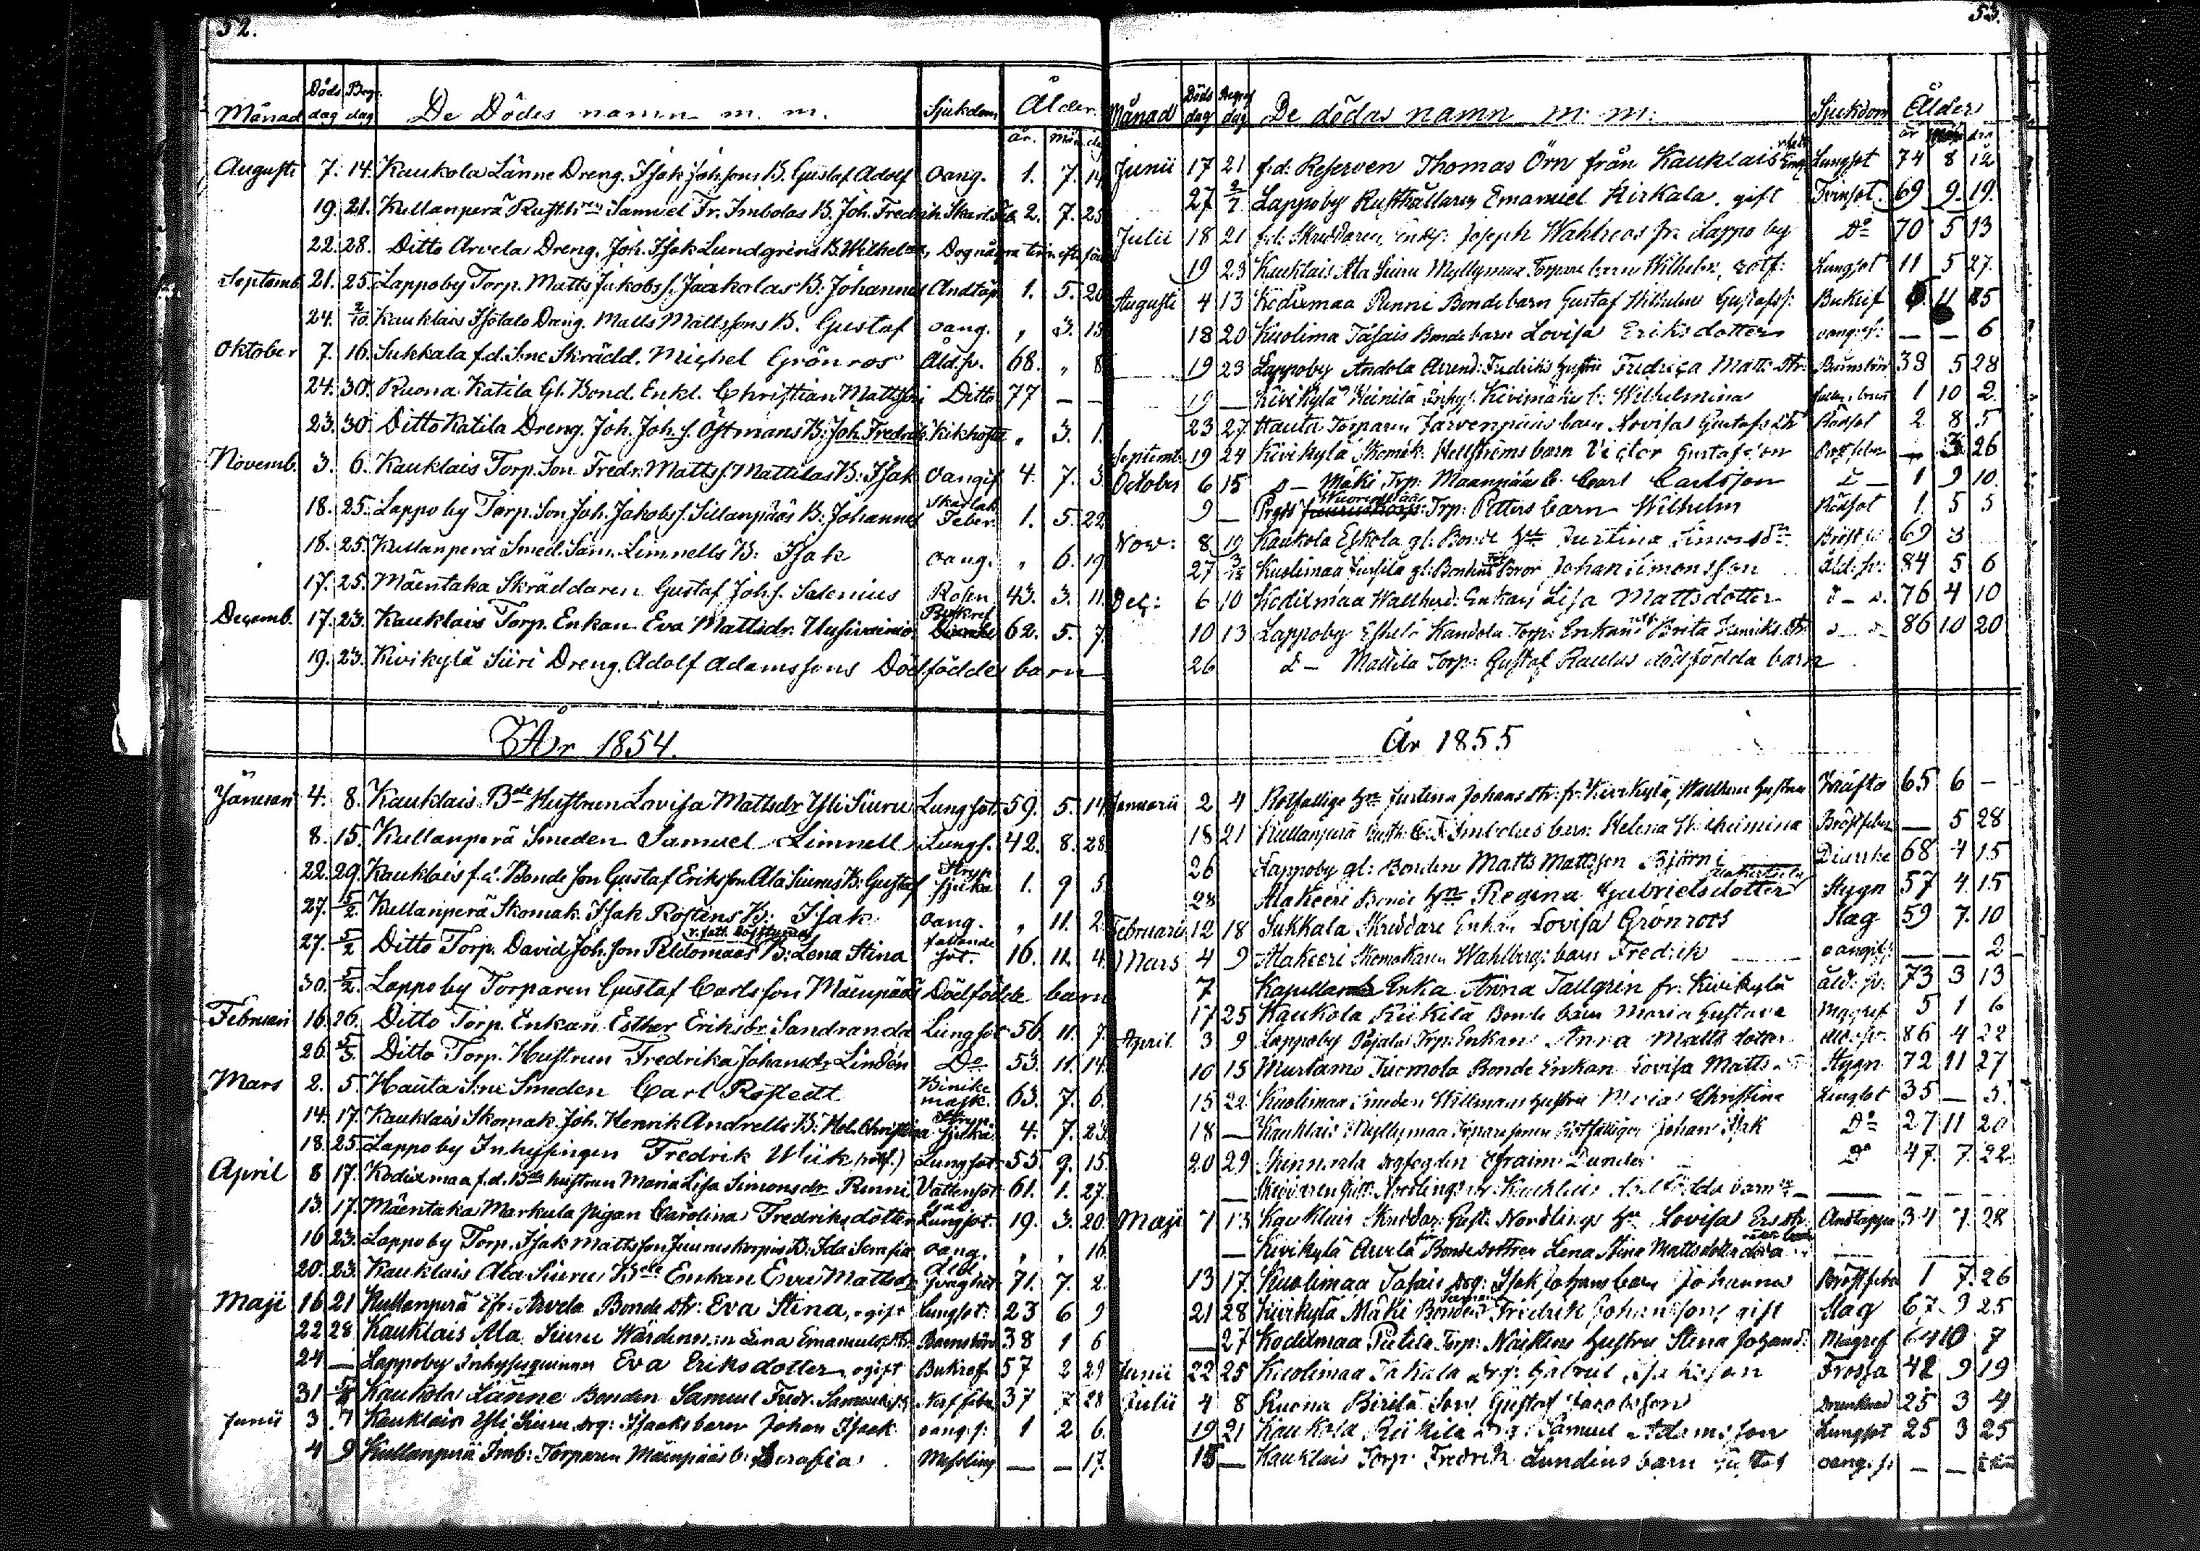 52.
Månad Döds dag Begr. dag De Dödes namn m. m. Sjukdom Ålder år. mån. dag
Augusti 7. 14. Kaukola Länne Dreng. Isak Johssons B. Gustaf Adolf oang. 1. 7. 14
19. 21. Kullanperä Rusth Samuel Fr. Imbolas B. Joh. Fredrik Skarl. Feb 2. 7. 25
22. 28. Ditto Arvela Dreng. Joh. Isak Lundgrens B. Wilhelm, Dog några tim. efter
Septemb. 21. 25. Lappoby Torp. Matts Jakobss. Jaakolas B. Johannes Andtäp 1. 5. 20
24. 2/10. Kauklais Isotalo Dreng. Matts Mattssons B. Gustaf oang. „ 3. 13
Oktober 7. 16. Sukkala f.d. Sne Skrädd. Michel Grönros Åld.sv. 68. „ 8
24. 30. Ruona Katila Gl. Bond. Enkl. Christian Mattss Ditto 77 – –
23. 30. Ditto Katila Dreng. Joh. Joh. s. Östmans B. Joh. Fredrik Kikhosta „ 3. 1.
Novemb. 3. 6. Kauklais Torp. Son Fredr. Mattss. Mattilas B. Isak oangif 4. 7. 3
18. 25. Lappoby Torp. Son Joh. Jakobss. Sillanpääs B. Johannes Skarlak. Feber. 1. 5. 22
18. 25. Kullanperä Smed. Sam. Limnells B. Isak oang. „ 6. 19
17. 25. Mäentaka Skräddaren Gustaf Johs. Salenius Rosen 43. 3. 11.
Decemb. 17. 23. Kauklais Torp. Enkan Eva Mattsdr. Uusivainio Bukref 62. 5. 7
19. 23. Kivikylä Siiri Dreng. Adolf Adamssons Dödfödde barn
År 1854.
Januari 4. 8. Kauklais Bde Hustrun Lovisa Mattsdr Yli Siuru Lungsot 59. 5. 14
8. 15. Kullanperä Smeden Samuel Limnell Lungs. 42. 8. 28
22. 29. Kauklais f.d. Bonde son Gustaf Eriksson Ala Siurus B. Gustaf Stryp sjuka 1. 9 5
27. 5/2. Kullanperä Skomak. Isak Rostens B. Isak oang. „ 11. 2
27. 5/2 Ditto Torp. David Joh.son Peldomaas B. Lena Stina fallande sot. 16. 11. 4
30. 5/2. Lappoby Torparen Gustaf Carlsson Mäenpääs Dödfödde barn
Februari 16. 26. Ditto Torp. Enkan Esther Eriksdr. Sandranda Lungsot 56. 11. 7
26. 5/3. Ditto Torp. Hustrun Fredrika Johansdr Lindén Do 53. 11. 14
Mars 2. 5. Hauta Sne Smeden Carl Rostedt Binike mask. 63. 7. 6.
14. 17. Kauklais Skomak. Joh. Henrik Andrells B. Hel. Christina Stryp sjuka 4. 7. 23
18. 25. Lappoby Inhysingen Fredrik Wiik Lungsot 55. 9. 15.
April 8 17. Kodixmaa f.d. Bde hustrun Maria Lisa Simonsdr Runni Vattensot 61. 1. 27.
13. 17. Mäentaka Markula pigan Carolina Fredriksdotter Lungsot. 19. 3. 20
16 23. Lappoby Torp. Isak Mattsson Juuneskorpis B. Ida Serafia oang. „ „ 16.
20. 23. Kauklais Ala Siuru Bde Enkan Eva Mattsdr svaghet 71. 7. 2.
Maji 16 21 Kullanperä Arvela Bonde dtr. Eva Stina, ogift Lungsot. 23 6 9
22 28 Kauklais Ala Siuru Lena Emanuelsdtr Barnsbörd 38 1 6
24 — Lappoby Inhysesqvinnan Eva Eriksdotter, ogift Bukref 57 2 29
31 Kaukola Länne Bonden Samuel Fredr. 37 7 28
Junii 3 7 Kauklais Yli Siuru drg. Isaks barn Johan Isaak oang. s. 1 2 6.
4 9 Kullanperä Imb. Torparen Mäenpääs b. Serafia Messling — — 17.
53.
Månad Döds dag Begraf dag De dödas namn m. m. Sjukdom Ålder år dar
Junii 17 21 f.d. Reserven Thomas Örn från Kauklais Lungsot 74 8 12
27 2/7 Lappoby Rusthållaren Emanuel Kirkala, gift Tvinsot 69 9. 19.
Julii 18 21 f.d. Skräddaren, Joseph Wahlroos fr. Lappo by Do 70 5 13
19 23 Kauklais Ala Siuru Myllymaa barn Wilhelm, Lungsot 11 5 27.
Augusti 4 13 Kodixmaa Runni Bondebarn Gustaf Wilhelm Gustafss. Bukref 11 25
18 20 Kuolima Tasais Bonde barn Lovisa Eriksdotter oang.s. — — 6
19 23 Lappoby Andola Fredriks hustru Fredrica Matts dtr. Barnsbörd 38 5 28
19 — Kivikylä Heinilä Inhys. Kivimäkis b. Wilhelmina 1 10 2.
23 27 Hauta Torparen Järvenpääs barn Lovisa Gustafs dtr Rödsot 2 8 5
Septemb. 19 24 Kivikylä Skomak. Hellströms barn Victor Gustafsson Bröstfeber — 3 26
October 6 15 d— Mäki Torp. Maanpääs b. Carl Carlsson d— 1 9 10.
9 — Torp. Petters barn Wilhelm Rödsot 1 5 5
Nov: 8 19 Kaukola Eskola gl. Bonde Justina Simonsdr 69 3
27 3/12 Kuolimaa Bror Johan Simonsson Åld.sv. 84 5 6
Dec: 6 10 Kodixmaa Enkan Lisa Mattsdotter d— d. 76 4 10
10 13 Lappoby Eskelä Kandola Torp. Enkan Brita d— d— 86 10 20
26 d— Mattila Torp. Gustaf Paulus dödfödda barn
År 1855
Januarii 2 4 Rotfattige Justina Johans dtr. fr. Kivikylä, 65 6 —
18 21 Kullanperä Imbolas barn Helena Wilhelmina Bröstfeber — 5 28
26 Lappoby gl. Bonden Matts Mattsson Björni Diarrhe 68 4 15
28 Alakeeri Bonde Regina Gabrielsdotter Stygn 57 4. 15
Februarii 12 18 Sukkala Skräddare Enkn Lovisa Grönroos Slag 59 7. 10
Mars 4 9 Alakeeri Skomakaren Wahlbergs barn Fredrik oangif. — — 2
7 Enka Anna Tallgrén fr. Kivikylä åld.sv. 73 3 13
17 25 Kaukola Riikilä Bonde barn Maria Gustava Magref 5 1 6
April 3 9 Lappoby Pajala Torp. Enkan Anna Matts dotter åld.sv. 86 4 22
10 15 Murtamo Tuomola Bonde Enkan Lovisa Matts Stygn 72 11 27
15 22. Kuolimaa Smeden Willmans hustru Maria Christina Lungsot 35 — 5.
18 — Kauklais Myllymaa Johan Isak Do 27 11 20
20 29 Skinnarla Efraim Do 47. 7. 22
— Skräddaren Gust. Nordlings Kauklais dödfödda barn — — — —
Maji 7 13 Kauklais Skräddar. Gust. Nordlings Lovisa Andtäppa 34 7. 28
— Kivikylä Arvela Bonde dottren Lena Stina Mattsdotter
13 17. Kuolimaa Tasais drg. Isak Johans barn Johanna Bröstfeber 1 7. 26
21 28 Kivikylä Mäki Bonden Fredrik Johansson, gift Slag 67 9 25
— 27 Kodixmaa Torp. hustru Stina Johansd. Magref 64 10 7
Junii 22 25 Kuolimaa Drg. Gabriel Frossa 42 9 19
Julii 4 8 Ruona Birilä Son Gustaf Jacobsson 25 3 4
19 21 Kaukola Riikilä Drg. Samuel Adamsson Lungsot 25 3 25
15 — Kauklais Torp. Fredrik Lundins barn oang. s. — —